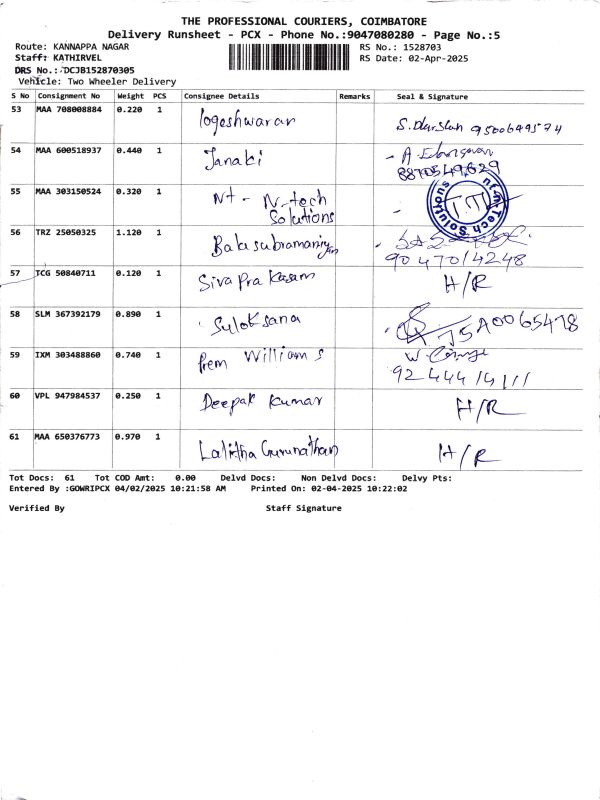 THE PROFESSIONAL COURIERS, COIMBATORE
Delivery Runsheet - PCX - Phone No.:9047080280 - Page No.:5
Route: KANNAPPA NAGAR RS No.: 1528703
Staff: KATHIRVEL RS Date: 02-Apr-2025
DRS No.: DCJB152870305
Vehicle: Two Wheeler Delivery
S No Consignment No Weight PCS Consignee Details Remarks Seal & Signature
53 MAA 708008884 0.220 1 logeshwaran S. Darshan 9500649574
54 MAA 600518937 0.440 1 Janaki
8870549629
55 MAA 303150524 0.320 1 Nt - N-tech
Solutions
nt-n-Tech Solutions
56 TRZ 25050325 1.120 1 Balasubramaniyan
9047014248
57 TCG 50840711 0.120 1 Sivaprakasam H/R
58 SLM 367392179 0.890 1 Suloksana
59 IXM 303488860 0.740 1 Prem Williams
9244414111
60 VPL 947984537 0.250 1 Deepak Kumar H/R
61 MAA 650376773 0.970 1 Lalitha Gurunathan H/R
Tot Docs: 61 Tot COD Amt: 0.00 Delvd Docs: Non Delvd Docs: Delvy Pts:
Entered By :GOWRIPCX 04/02/2025 10:21:58 AM Printed On: 02-04-2025 10:22:02
Verified By Staff Signature